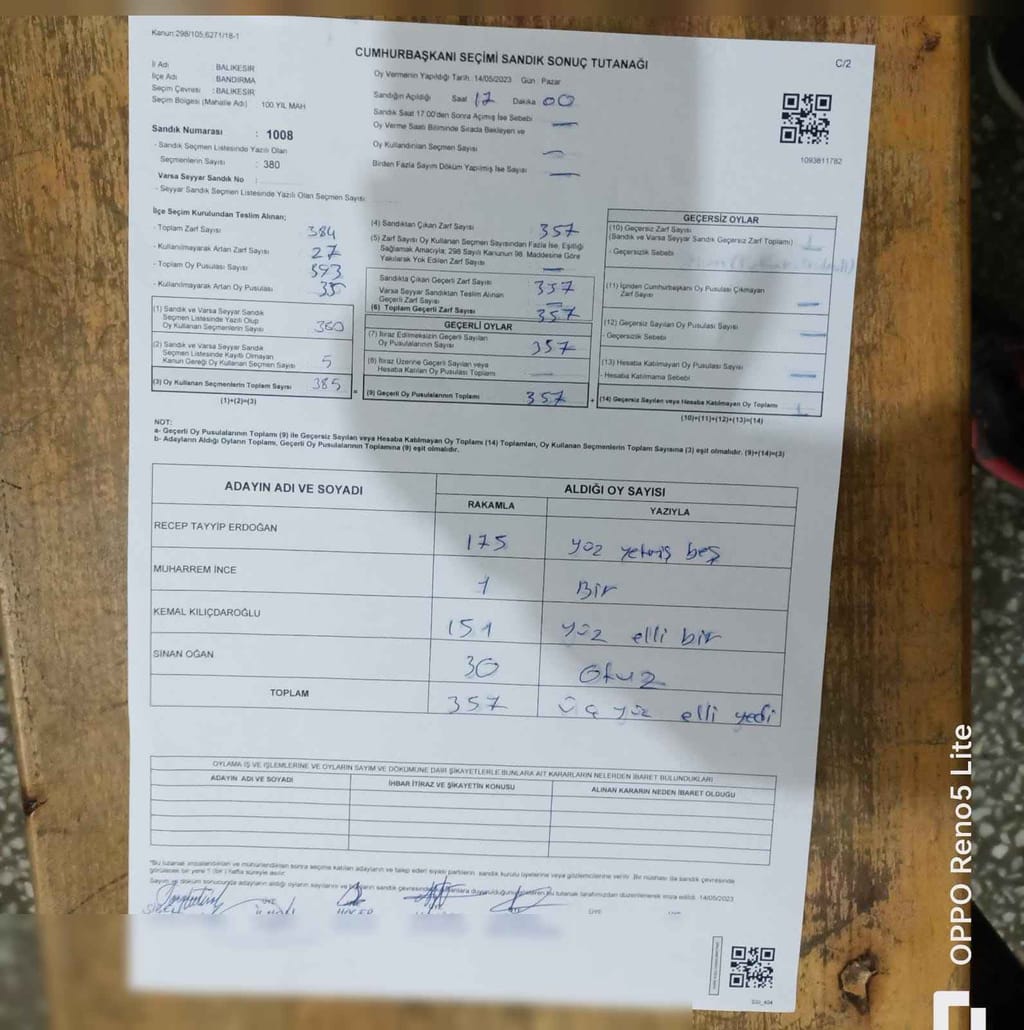 Kanun:298/105;6271/18-1
CUMHURBAŞKANI SEÇİMİ SANDIK SONUÇ TUTANAĞI
C/2
İl Adı : BALIKESİR
İlçe Adı : BANDIRMA
Seçim Çevresi : BALIKESİR
Seçim Bölgesi (Mahalle Adı) 100.YIL MAH
Sandık Numarası : 1008
- Sandık Seçmen Listesinde Yazılı Olan
Seçmenlerin Sayısı : 380
Varsa Seyyar Sandık No :
- Seyyar Sandık Seçmen Listesinde Yazılı Olan Seçmen Sayısı:
Oy Vermenin Yapıldığı Tarih : 14/05/2023 Gün : Pazar
Sandığın Açıldığı Saat 17 Dakika 00
Sandık Saat 17.00'den Sonra Açımış İse Sebebi —
Oy Verme Saati Bitiminde Sırada Bekleyen ve
Oy Kullandırılan Seçmen Sayısı —
Birden Fazla Sayım Döküm Yapılmış İse Sayısı —
1093811782
İlçe Seçim Kurulundan Teslim Alınan;
- Toplam Zarf Sayısı 384
- Kullanılmayarak Artan Zarf Sayısı 27
- Toplam Oy Pusulası Sayısı 393
- Kullanılmayarak Artan Oy Pusulası 35
(1) Sandık ve Varsa Seyyar Sandık
Seçmen Listesinde Yazılı Olup
Oy Kullanan Seçmenlerin Sayısı 380
(2) Sandık ve Varsa Seyyar Sandık
Seçmen Listesinde Kayıtlı Olmayan
Kanun Gereği Oy Kullanan Seçmen Sayısı 5
(3) Oy Kullanan Seçmenlerin Toplam Sayısı 385
(1)+(2)=(3)
(4) Sandıktan Çıkan Zarf Sayısı 357
(5) Zarf Sayısı Oy Kullanan Seçmen Sayısından Fazla İse, Eşitliği
Sağlamak Amacıyla; 298 Sayılı Kanunun 98. Maddesine Göre
Yakılarak Yok Edilen Zarf Sayısı —
Sandıkta Çıkan Geçerli Zarf Sayısı 357
Varsa Seyyar Sandıktan Teslim Alınan
Geçerli Zarf Sayısı —
(6) Toplam Geçerli Zarf Sayısı 357
GEÇERLİ OYLAR
(7) İtiraz Edilmeksizin Geçerli Sayılan
Oy Pusulalarının Sayısı 357
(8) İtiraz Üzerine Geçerli Sayılan veya
Hesaba Katılan Oy Pusulası Toplamı —
(9) Geçerli Oy Pusulalarının Toplamı 357
GEÇERSİZ OYLAR
(10) Geçersiz Zarf Sayısı
(Sandık ve Varsa Seyyar Sandık Geçersiz Zarf Toplamı) 1
- Geçersizlik Sebebi
(11) İçinden Cumhurbaşkanı Oy Pusulası Çıkmayan
Zarf Sayısı —
(12) Geçersiz Sayılan Oy Pusulası Sayısı —
- Geçersizlik Sebebi
(13) Hesaba Katılmayan Oy Pusulası Sayısı
- Hesaba Katılmama Sebebi —
(14) Geçersiz Sayılan veya Hesaba Katılmayan Oy Toplamı 1
(10)+(11)+(12)+(13)=(14)
NOT:
a- Geçerli Oy Pusulalarının Toplamı (9) ile Geçersiz Sayılan veya Hesaba Katılmayan Oy Toplamı (14) Toplamları, Oy Kullanan Seçmenlerin Toplam Sayısına (3) eşit olmalıdır. (9)+(14)=(3)
b- Adayların Aldığı Oyların Toplamı, Geçerli Oy Pusulalarının Toplamına (9) eşit olmalıdır.
ADAYIN ADI VE SOYADI ALDIĞI OY SAYISI
RAKAMLA YAZIYLA
RECEP TAYYİP ERDOĞAN 175 yüz yetmiş beş
MUHARREM İNCE 1 Bir
KEMAL KILIÇDAROĞLU 151 yüz elli bir
SİNAN OĞAN 30 Otuz
TOPLAM 357 üç yüz elli yedi
OYLAMA İŞ VE İŞLEMLERİNE VE OYLARIN SAYIM VE DÖKÜMÜNE DAİR ŞİKAYETLERLE BUNLARA AİT KARARLARIN NELERDEN İBARET BULUNDUKLARI
ADAYIN ADI VE SOYADI İHBAR İTİRAZ VE ŞİKAYETİN KONUSU ALINAN KARARIN NEDEN İBARET OLDUĞU
*Bu tutanak imzalandıktan ve mühürlendikten sonra seçime katılan adayların ve takip eden siyasi partilerin sandık kurulu üyelerine veya gözlemcilerine verilir. Bir nüshası da sandık çevresinde
görülecek bir yere 1 (bir) hafta süreyle asılır.
Sayım ve döküm sonucunda adayların aldığı oyların sayılarını ve sandık çevresinde duyurulduğunu tutanak tarafımızdan düzenlenerek imza edildi. 14/05/2023
ÜYE ÜYE
OPPO Reno5 Lite